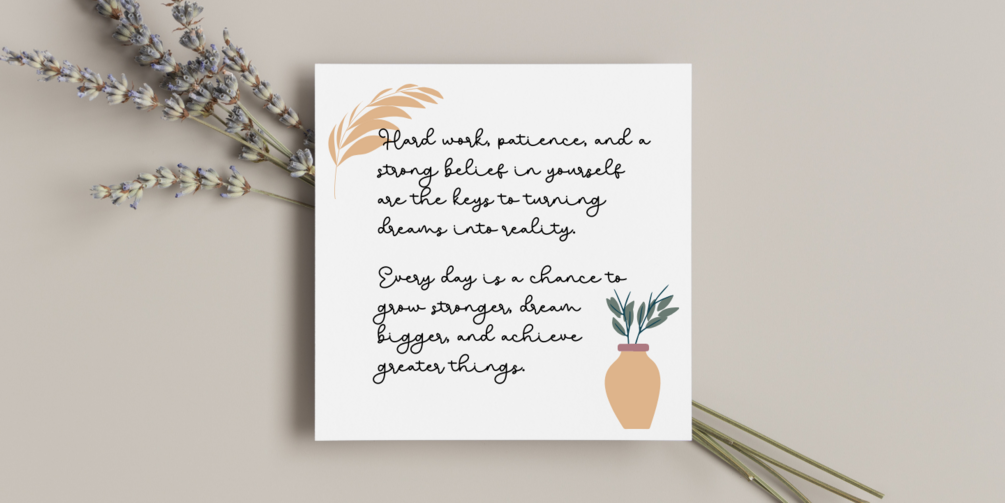 Hard work, patience, and a
strong belief in yourself
are the keys to turning
dreams into reality.
Every day is a chance to
grow stronger, dream
bigger, and achieve
greater things.